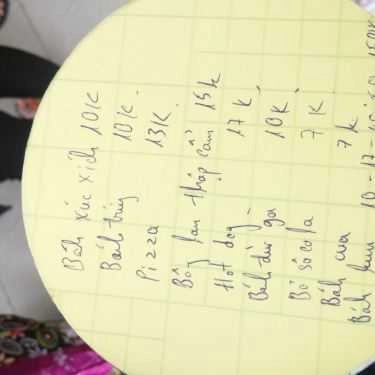 Bánh xúc xích 10K
Bánh trứng 10K.
Pizza 13K.
Bông lan thập cẩm 15k
Hot dog 17K
Bánh đùi gà 10K
Bò sôcôla 7K
Bánh cua 7k
Bánh kem 10-17-